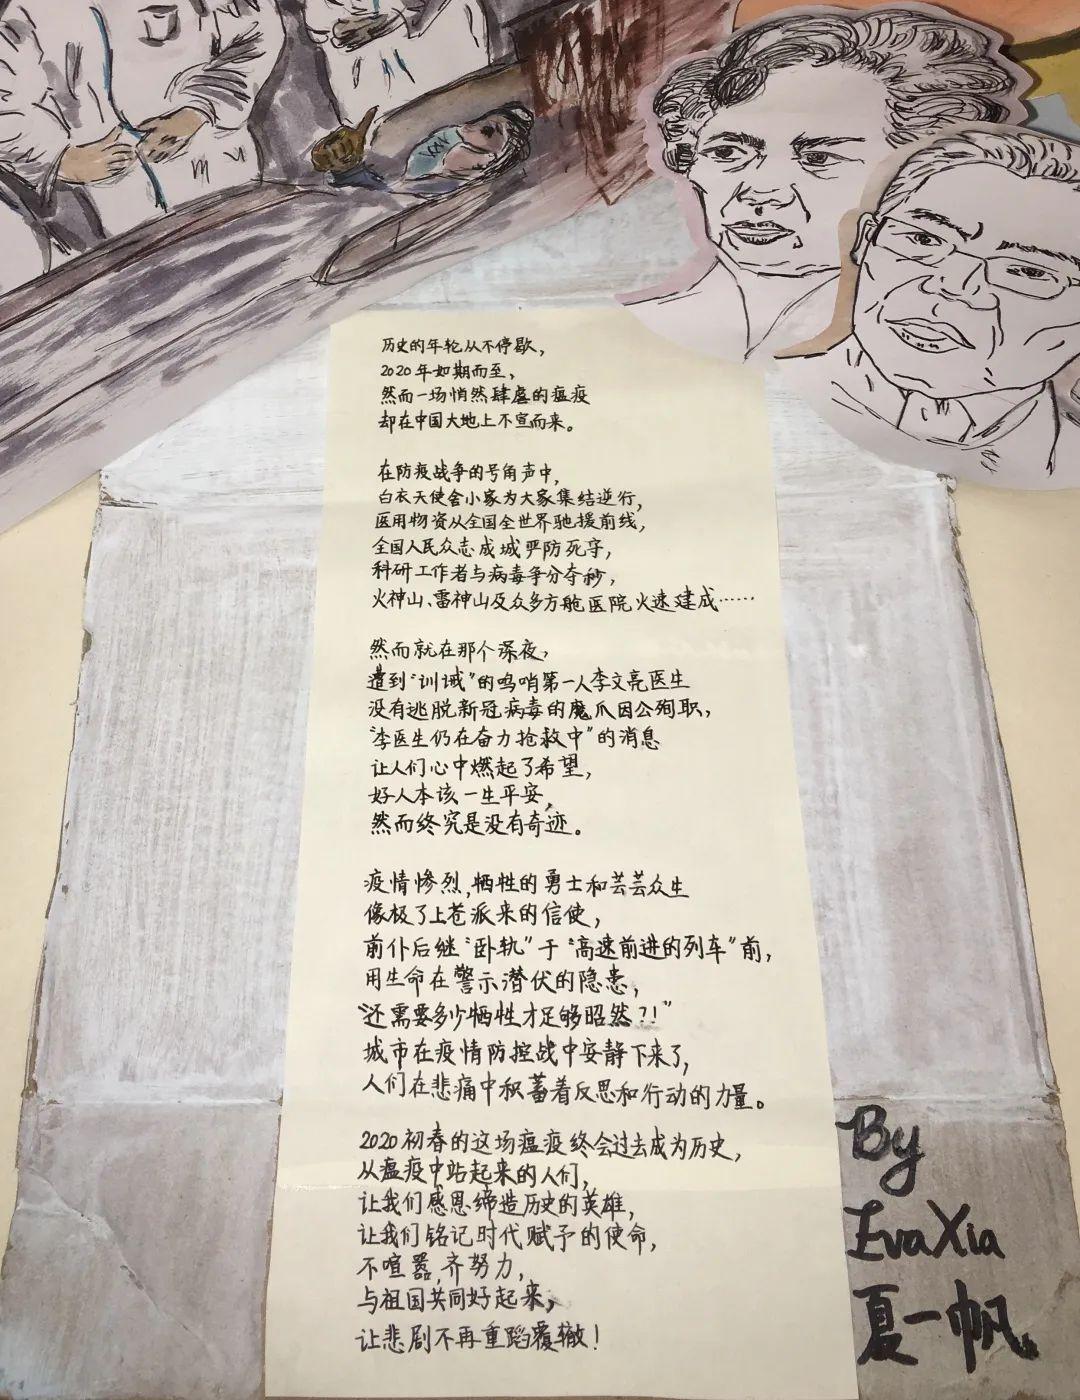 历史的年轮从不停歇，
2020年如期而至，
然而一场悄然肆虐的瘟疫
却在中国大地上不宣而来。
在防疫战争的号角声中，
白衣天使舍小家为大家集结逆行，
医用物资从全国全世界驰援前线，
全国人民众志成城严防死守，
科研工作者与病毒争分夺秒，
火神山、雷神山及众多方舱医院火速建成……
然而就在那个深夜，
遭到“训诫”的鸣哨第一人李文亮医生
没有逃脱新冠病毒的魔爪因公殉职，
“李医生仍在奋力抢救中”的消息
让人们心中燃起了希望，
好人本该一生平安，
然而终究是没有奇迹。
疫情惨烈，牺牲的勇士和芸芸众生
像极了上苍派来的信使，
前仆后继“卧轨”于“高速前进的列车”前，
用生命在警示潜伏的隐患，
“还需要多少牺牲才足够昭然？！”
城市在疫情防控战中安静下来了，
人们在悲痛中积蓄着反思和行动的力量。
2020初春的这场瘟疫终会过去成为历史，
从瘟疫中站起来的人们，
让我们感恩缔造历史的英雄，
让我们铭记时代赋予的使命，
不喧嚣，齐努力，
与祖国共同好起来，
让悲剧不再重蹈覆辙！
By
Eva Xia
夏一帆